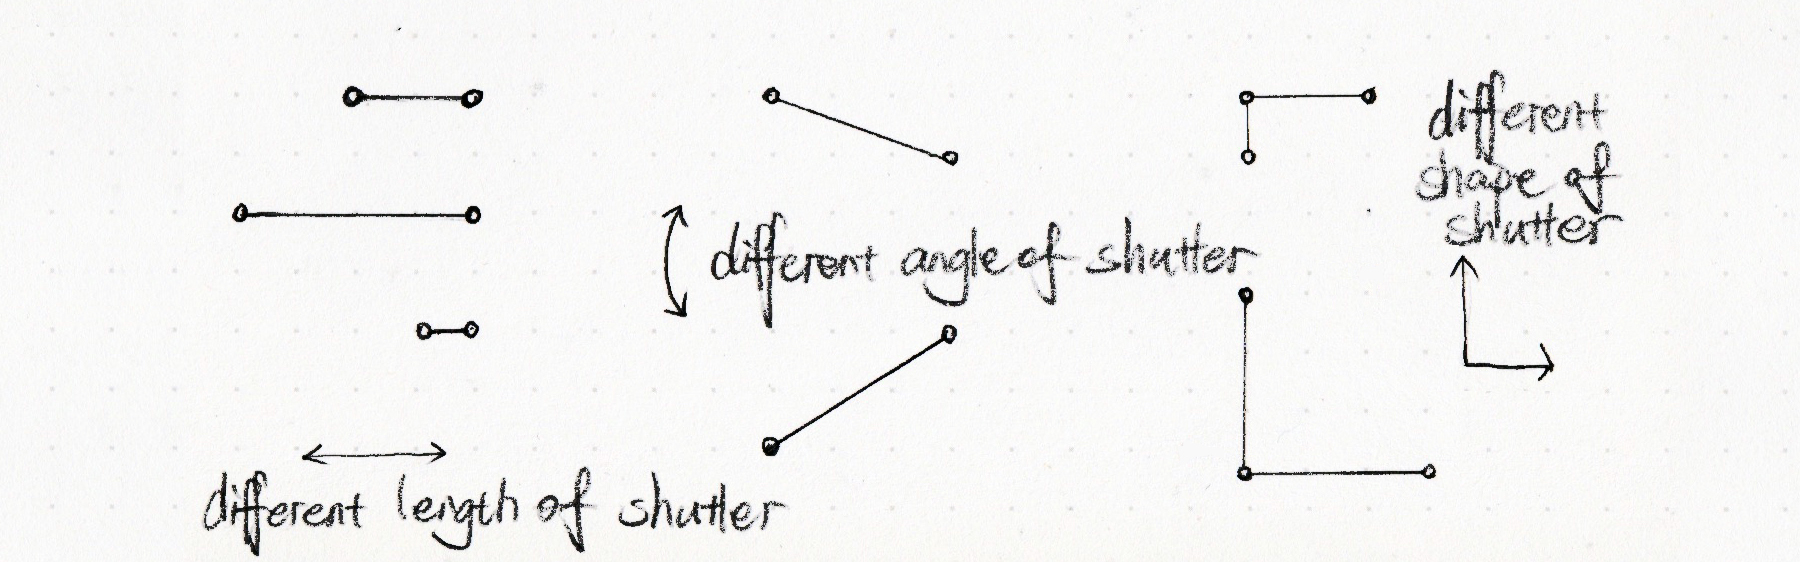 different
shape of
shutter
different angle of shutter
different length of shutter